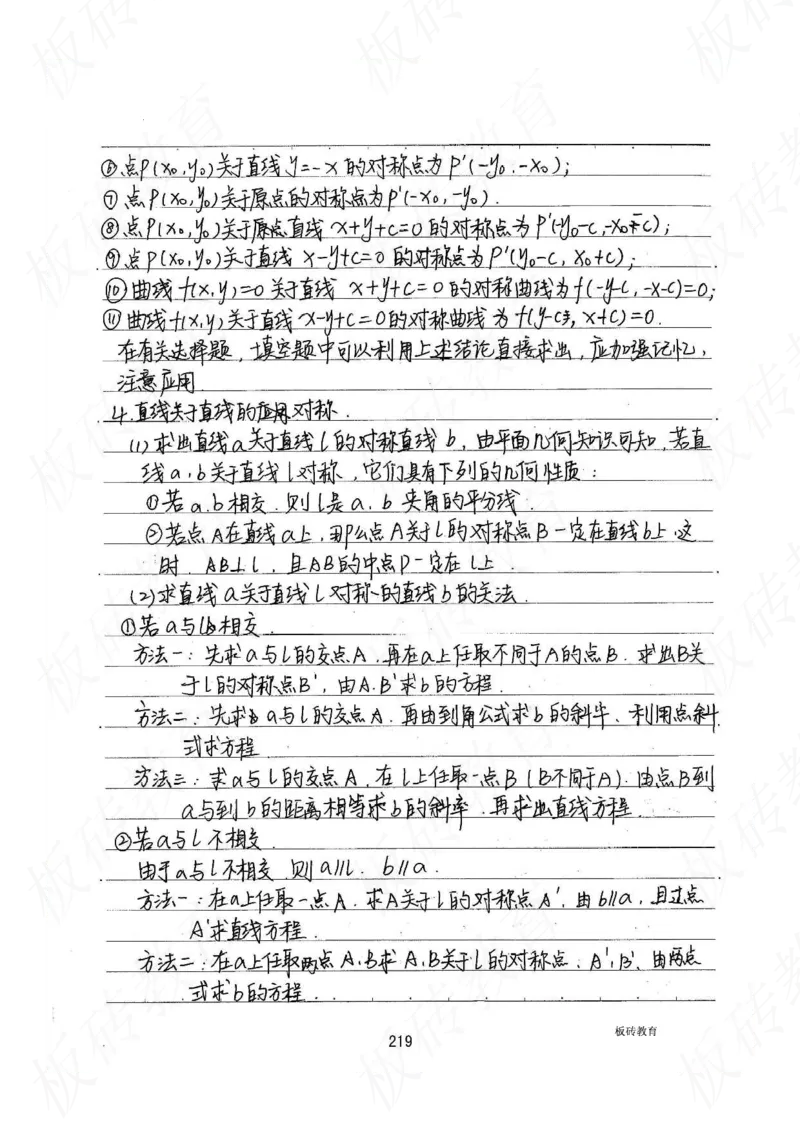 ⑥点P(x₀,y₀)关于直线y=-x的对称点为P'(-y₀,-x₀);
⑦点P(x₀,y₀)关于原点的对称点为P'(-x₀,-y₀).
⑧点P(x₀,y₀)关于原点直线 x+y+c=0的对称点为P'(-y₀-c,-x₀-c);
⑨点P(x₀,y₀)关于直线 x-y+c=0的对称点为P'(y₀-c, x₀+c);
⑩曲线f(x,y)=0关于直线 x+y+c=0的对称曲线为f(-y-c,-x-c)=0;
⑪曲线f(x,y)关于直线x-y+c=0的对称曲线为f(y-c, x+c)=0.
在有关选择题,填空题中可以利用上述结论直接求出,应加强记忆,
注意应用
4.直线关于直线的对称.
(1)求出直线a关于直线l的对称直线b,由平面几何知识可知,若直
线a,b关于直线l对称,它们具有下列的几何性质:
①若a.b相交.则l是a,b夹角的平分线.
②若点A在直线a上,那么点A关于l的对称点B一定在直线b上,这
时.AB⊥l,且AB的中点P一定在l上.
(2)求直线a关于直线l对称的直线b的方法.
①若a与l相交.
方法一:先求a与l的交点A,再在a上任取不同于A的点B.求出B关
于l的对称点B',由A.B'求b的方程.
方法二:先求a与l的交点A.再由到角公式求b的斜率、利用点斜
式求方程.
方法三:求a与l的交点A,在l上任取一点B(B不同于A).由点B到
a与到b的距离相等求b的斜率.再求出直线方程.
②若a与l不相交.
由于a与l不相交.则a∥l. b∥a.
方法一:在a上任取一点A.求A关于l的对称点A',由b∥a,且过点
A'求直线方程.
方法二:在a上任取两点A,B求A,B关于l的对称点、A',B',由两点
式求b的方程.
219
板砖教育
板砖教育